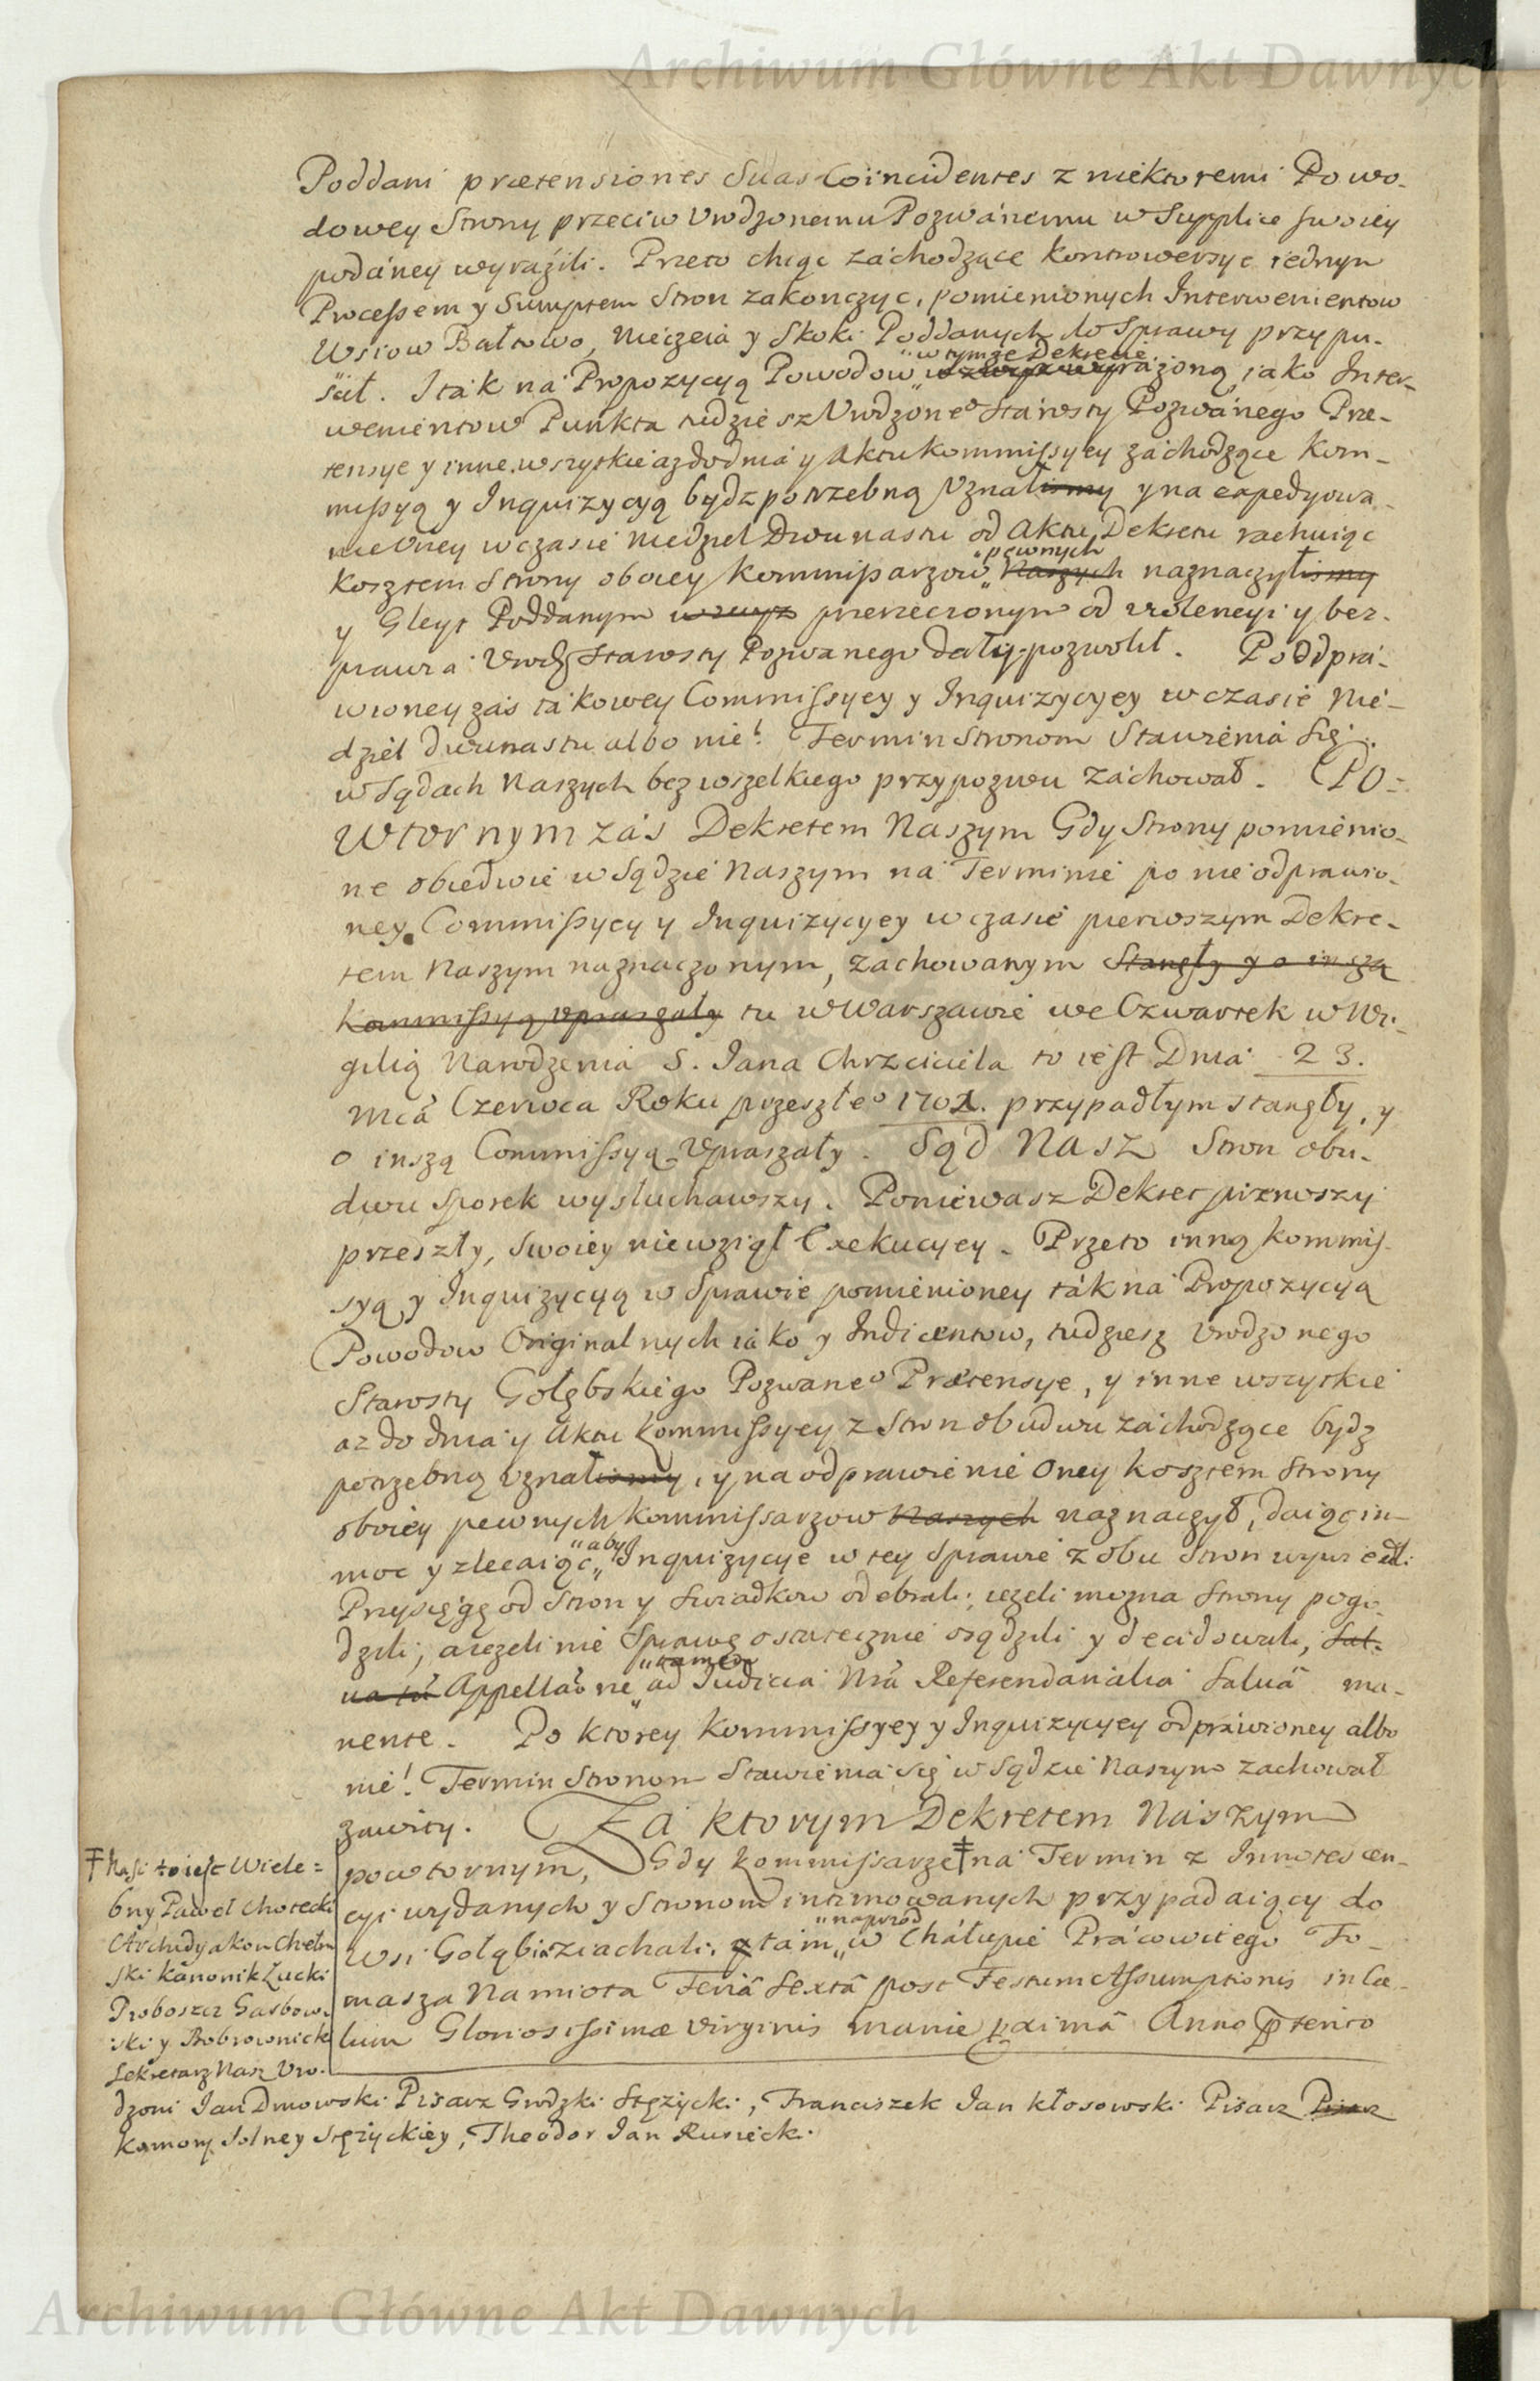 Archiwum Główne Akt Dawnych
Poddani prætensiones Suas Coincidentes z niektoremi Powo-
dowey Strony przeciw Vrodzonemu Pozwánemu w Supplice swoiey
podáney wyraźili. Przeto chcąc záchodzące Kontrowersye iednym
Processem y Sumptem Stron zakonczyc, pomienionych Interwenientow
Wsiow Bałtowo, Nieczeia y Skoki Poddanych do Sprawy przypu-
śćił. Iták ná Propozycyą Powodow w tymze Dekrecie wyrażoną iako Inter-
wenientow Punkta tudziesz Vrodzoneo Stárosty Pozwánego Pre-
tensye y inne wszytkie az do dnia y Aktu Kommissyey záchodzące Kom-
missyą y Inquizycyą bydz potrzebną Vznalismy y na expedyowa-
nie Oney w czasie Niedziel Dwunastu od Aktu Dekretu rachuiąc
kosztem Strony oboiey Kommissarzow pewnych Naszych naznaczylismy
y Gleyt Poddanym wzwyz przerzeczonym od violencyi y bez-
prawia Vrodz Starosty Pozwanego dáły pozwolił. Po odprá-
wioney zás tákowey Commissyey y Inquizycyey w czasie Nie-
dziel dwunastu albo nie! Termin Stronom Stawienia Się
w Sądach Naszych bez wszelkiego przypozwu záchował. PO-
Wtornym zás Dekretem Naszym Gdy Strony pomienio-
ne obiedwie w Sądzie Naszym na Terminie po nie odprawio-
ney Commissyey y Inquizycyey w czasie pierwszym Dekre-
tem Naszym naznaczonym, záchowanym Stanęły y o inszą
Kommissyą vpraszały tu w Warszawie we Czwartek w Wi-
gilią Narodzenia S. Iana Chrzciciela to iest Dnia 23.
Mcá Czerwca Roku przeszłeo 1701. przypadłym stanęły, y
o inszą Commissyą Vpraszały. Sąd Nasz Stron obu-
dwu Sporek wysłuchawszy. Poniewasz Dekret pierwszy
przeszły, Swoiey niewziął Exekucyey. Przeto inną Kommis-
syą y Inquizycyą w Sprawie pomienioney ták ná Propozycyą
Powodow Originalnych iáko y Indicentow, tudziesz Vrodzonego
Starosty Gołębskiego Pozwaneo Prætensye, y inne wszytkie
az do dnia y Aktu Kommissyey z Stron obudwu záchodzące bydz
potrzebną Vznalismy, y na odprawienie Oney kosztem Strony
oboiey pewnych Kommissarzow Naszych naznaczył, daiąc im
moc y zlecaiąc, aby Inquizycye w tey Sprawie z obu Stron wywiedli
Przysięgę od Stron y Swiadkow odebrali; iezeli mozna Strony pogo-
dzili; a iezeli nie Sprawę ostatecznie osądzili y decidowali, Sal-
ua Appellaõne tamen ad Iudicia Nrã Referendarialia Saluâ ma-
nente. Po ktorey Kommissyey y Inquizycyey odpráwioney albo
nie! Termin Stronom Stawienia się w Sądzie Naszym záchował
zawity. Zá ktorym Dekretem Nászym
powtornym, Gdy Kommissarze ‡ ná Termin z Innotescen-
cyi wydanych y Stronom intimowanych przypadaiący do
Wsi Gołąbia ziachali, y tám naprzod w Cháłupie Prácowitego To-
masza Namiota Feriâ Sextâ post Festum Assumptionis in Cæ-
lum Gloriosissimæ Virginis mane primâ Anno Prtenro
‡ Nasi to iest Wiele-
bny Paweł Chotecki
Archidyakon Chełm
ski Kanonik Łucki
Proboszcz Garbow-
ski y Bobrownicki
Sekretarz Nasz Vro-
dzoni Ian Dmowski Pisarz Grodzki Stężycki, Franciszek Ian Kłosowski Pisarz Pisarz
Komory Solney Stężyckiey, Theodor Ian Rusiecki.
Archiwum Główne Akt Dawnych